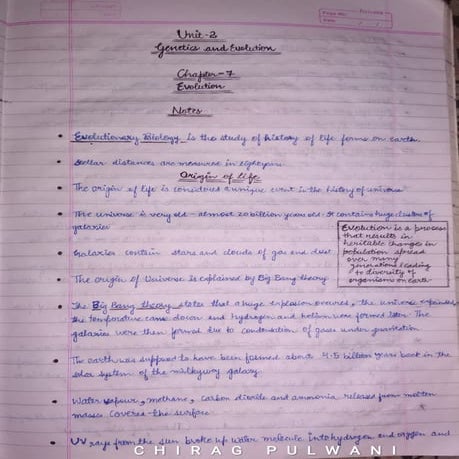 Page No.:
Date
Unit-2
Genetics and Evolution
Chapter-7
Evolution
Notes
• Evolutionary Biology is the study of history of life forms on earth.
• Stellar distances are measured in light years
Origin of life
• The origin of life is considered a unique event in the history of universe
• The universe is very old - almost 20 billion years old. It contains huge clusters of
galaxies
Evolution is a process
that results in
heritable changes in
population spread
over many
generations leading
to diversity of
organisms on earth
• Galaxies contain stars and clouds of gas and dust
• The origin of Universe is explained by Big Bang theory
• The Big Bang theory states that a huge explosion occured, the universe expanded,
the temperature came down and hydrogen and helium were formed later. The
galaxies were then formed due to condensation of gases under gravitation
• The earth was supposed to have been formed about 4.5 billion years back in the
solar system of the milkyway galaxy
• Water vapour, methane, carbon dioxide and ammonia released from molten
masses covered the surface
• UV rays from the sun broke up water molecule into hydrogen and oxygen and
CHIRAG PULWANI